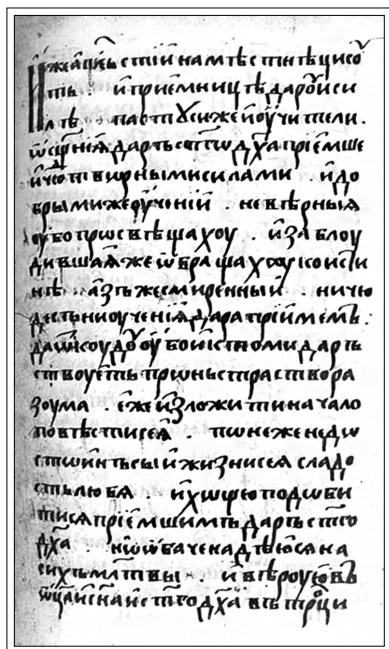 иже апⷭ҇льстїи намѣстници соу҆
ть . и҆ прїемници дарѡⷨ и си
лѣ . пастꙋси же и҆ оу҆чители .
ѡ҆сщ҃енїѧ даръ ст҃го дх҃а прїемше
и҆ чю́твирными силами . и҆ до
брыми же оу҆ченїи . невѣрныѧ
оу҆бо просвѣщахоу . и҆ заблоу
дившаѧ же ѡ҆бращахоу ко иси
нѣ а҆зъ же смиренныи . ничю
десъ ни оу҆ченїѧ дара прїимемъ .
но оу҆бои҆стноми даръ
ствоуетъ простра створа
зоума . е҆же и҆зложити начало
повѣсти сеѧ . понеже недѡ
стѡинъ сы и҆ жизни сеѧ сладо
сть любѧ . и҆ хѡщю подѡби
тисѧ прїемшимъ даръ ст҃го
дх҃а . нѡ ѡ҆баче надѣю́сѧ на
сихъ мл҃твы . и҆ вѣроую въ
ѡ҆ц҃а и҆ сн҃а и҆ ст҃го дх҃а въ трⷪ҇ци